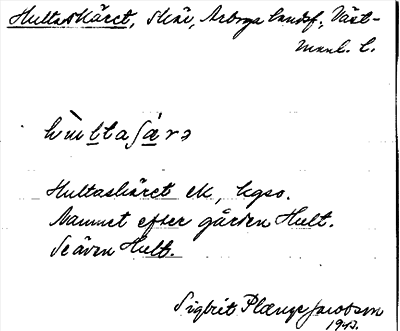 Hultaskäret, Skär, Arboga landsf., Väst-
manl. l.
hùltaʃärə
Hultaskäret ek, kgso.
Namnet efter gården Hult.
Se även Hult.
Sigbrit Plænge Jacobson